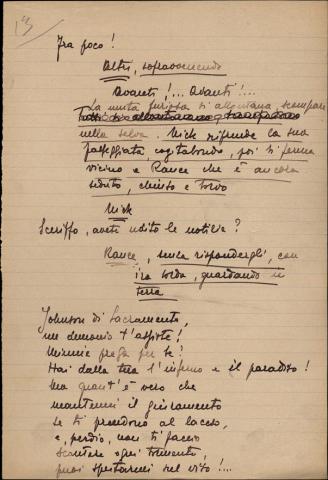 13/
Fra poco!
Altri, sopravvenendo
Avanti!... Avanti!...
La muta furiosa si allontana, scompare
Tutti si allontanano
nella selva. Nick riprende la sua
passeggiata, cogitabondo, poi si ferma
vicino a Rance che è ancora
seduto, chiuso e torvo
Nick
Sceriffo, avete udito le notizie?
Rance, senza rispondergli, con
ira sorda, guardando in
terra
Johnson di Sacramento,
un demonio t'assiste!
Minnie prega per te?
Hai dalla tua l'inferno e il paradiso!
Ma quant'è vero che
mantenni il giuramento
se ti prendono al laccio,
e, perdio, non ti faccio
scontare ogni tormento,
puoi sputarmi sul viso!...